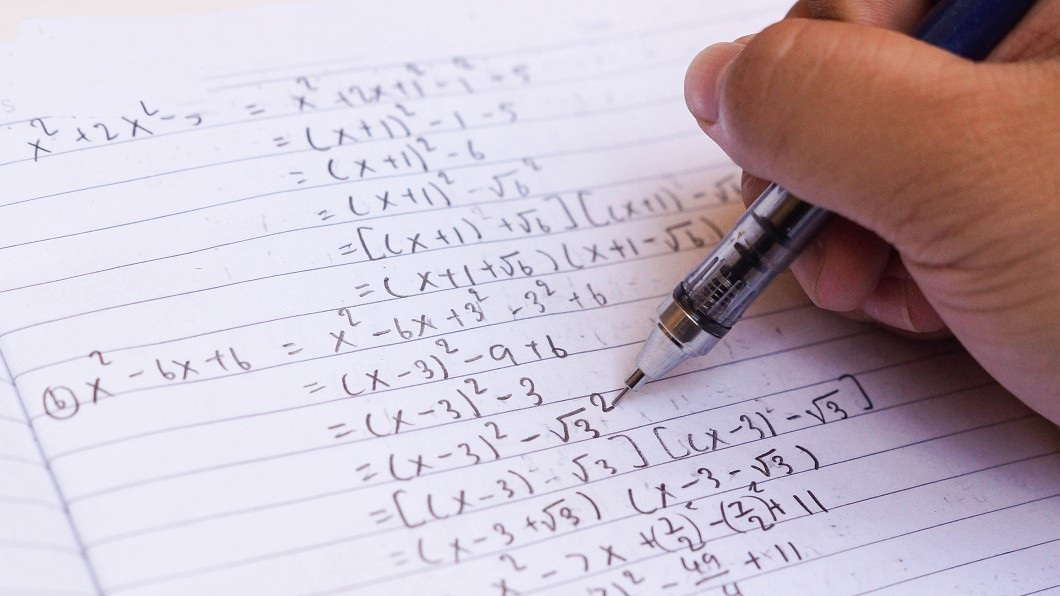 x² + 2x² - 5 = x² + 2x + 1² - 1² - 5
= (x+1)² - 1 - 5
= (x+1)² - 6
= (x+1)² - √6²
= [(x+1)² + √6] [(x+1)² - √6
= (x+1+√6) (x+1-√6)
(b) x² - 6x + 6 = x² - 6x + 3² - 3² + 6
= (x-3)² - 9 + 6
= (x-3)² - 3
= (x-3)² - √3²
= [(x-3) - √3] [(x-3)² - √3]
= (x-3+√3) (x-3-√3)
x² - 7x + (7/2)² - (7/2)² + 11
)² - 49/4 + 11